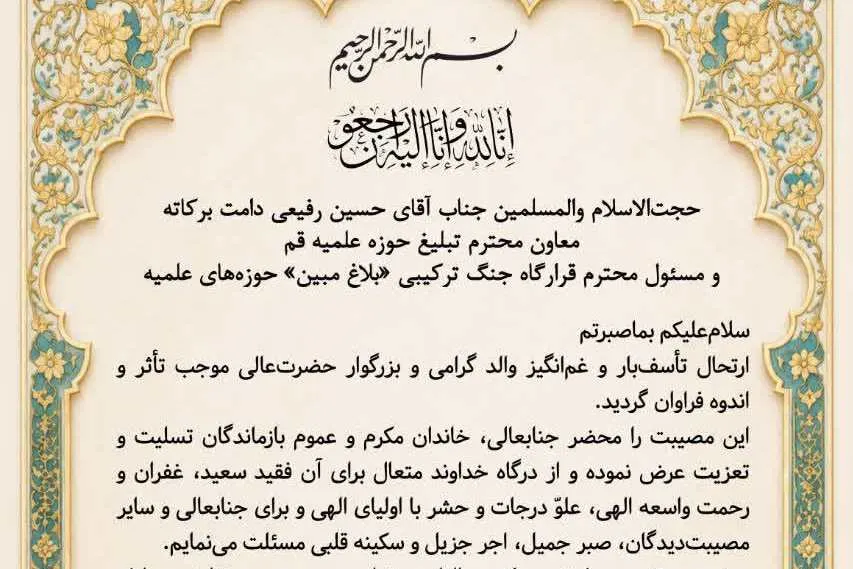 بسم الله الرحمن الرحیم
إنّا لله وإنّا إلیه راجعون
حجت‌الاسلام والمسلمین جناب آقای حسین رفیعی دامت برکاته
معاون محترم تبلیغ حوزه علمیه قم
و مسئول محترم قرارگاه جنگ ترکیبی «بلاغ مبین» حوزه‌های علمیه
سلام‌علیکم بماصبرتم
ارتحال تأسف‌بار و غم‌انگیز والد گرامی و بزرگوار حضرت‌عالی موجب تأثر و
اندوه فراوان گردید.
این مصیبت را محضر جنابعالی، خاندان مکرم و عموم بازماندگان تسلیت و
تعزیت عرض نموده و از درگاه خداوند متعال برای آن فقید سعید، غفران و
رحمت واسعه الهی، علوّ درجات و حشر با اولیای الهی و برای جنابعالی و سایر
مصیبت‌دیدگان، صبر جمیل، اجر جزیل و سکینه قلبی مسئلت می‌نمایم.